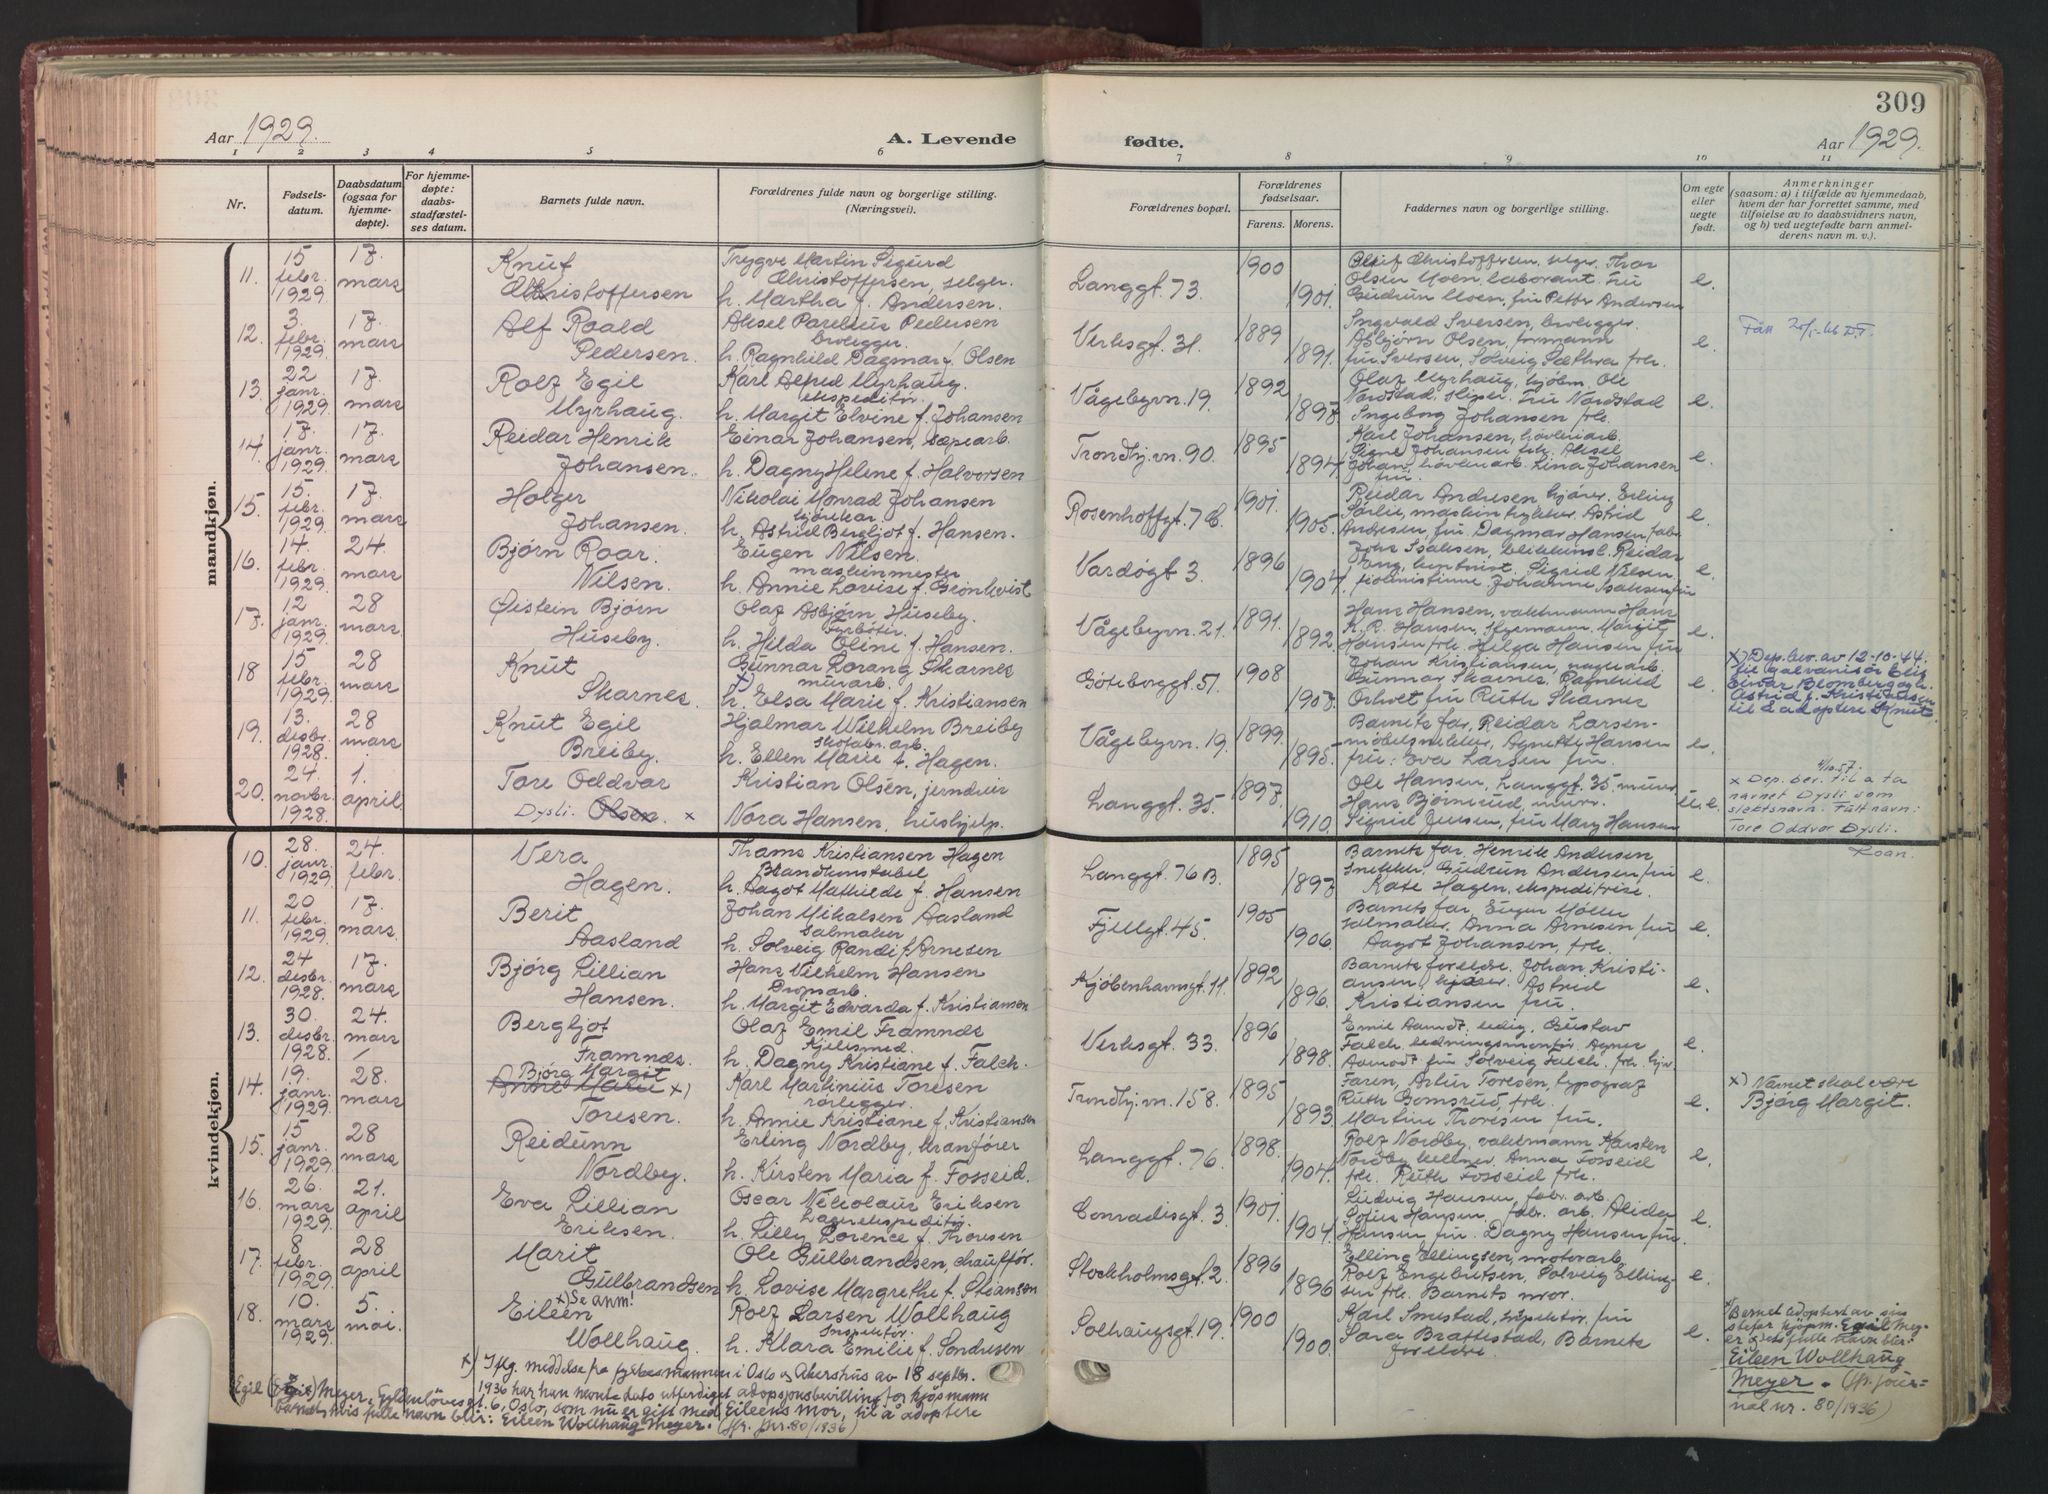 309
Aar 1929.
A. Levende
fødte.
Aar 1929.
1 2 3 4 5 6 7 8 9 10 11
Nr.
Fødsels-
datum.
Daabsdatum
(ogsaa for
hjemme-
døpte).
For hjemme-
døpte:
daabs-
stadfæstel-
ses datum.
Barnets fulde navn.
Forældrenes fulde navn og borgerlige stilling.
(Næringsvei).
Forældrenes bopæl.
Forældrenes
fødselsaar.
Farens. Morens.
Faddernes navn og borgerlige stilling.
Om egte
eller
uegte
født.
Anmerkninger
(saasom: a) i tilfælde av hjemmedaab,
hvem der har forrettet samme, med
tilføielse av to daabsvidners navn,
og b) ved uegtefødte barn anmel-
derens navn m. v.).
mandkjøn.
11. 15 febr. 1929 17. mars
Knut
Christoffersen
Trygve Martin Sigurd
Christoffersen, selger.
h. Martha f. Andersen.
Langgt. 73. 1900 1901.
Olsen Moen laborant. Fru
Gudrun Moen, fru Petra Andersen
e.
12. 3. febr. 1929 17. mars
Alf Roald
Pedersen.
Aksel Parelius Pedersen
broligger
h. Ragnhild Dagmar f. Olsen
Verksgt. 31. 1889 1891.
Ingvald Iversen, broligger.
Asbjørn Olsen, formann
fru Iversen, Solveig Sæthra frk.
e.
13. 22 janr. 1929. 17. mars
Rolf Egil
Myrhaug.
Karl Alfred Myrhaug.
ekspeditør.
h. Margit Elvine f. Johansen
Vågebyvn. 19. 1892 1897.
Olaf Myrhaug, kjøbm. Ole
Nordstad, sliper. Fru Nordstad
Ingeborg Johansen frk.
e.
14. 17. janr. 1929. 17. mars
Reidar Henrik
Johansen.
Einar Johansen, sæpearb.
h. Dagny Helene f. Halvorsen
Trondhj.vn. 90. 1895 1894.
Karl Johansen, høvleriarb.
Signe Johansen frk. Aksel
Johan. høvleriarb. Lina Johansen
fru.
e.
15. 15. febr. 1929 17. mars
Holger
Johansen.
Nikolai Monrad Johansen
kjørekar
h. Astrid Bergljot f. Hansen.
Rosenhoffgt. 7 b. 1901. 1905.
Reidar Andresen kjører. Erling
Sørlie, maskintrykker. Astrid
Andresen, fru Dagmar Hansen, fabr.
e.
16. 14. febr. 1929 24. mars
Bjørn Roar.
Nilsen.
Eugen Nilsen.
maskinmester
h. Annie Lovise f. Bronkvist
Vardøgt. 3. 1896 1904.
Sigrid Nilsen
fiolinistinne Johanne Isaksen fru
e.
17. 12 janr. 1929. 28 mars.
Øistein Bjørn
Huseby.
Olaf Asbjørn Huseby.
fyrbøter.
h. Hilda Oline f. Hansen.
Vågebyvn. 21. 1891. 1892.
Hans Hansen, vaktmann Hans
K. R. Hansen, styrmann. Margit
Hansen frk. Helga Hansen fru
e.
18 15 febr. 1929. 28 mars
Knut
Skarnes.
Gunnar Lorang Skarnes
x) murarb.
h. Elsa Marie f. Kristiansen
Gøteborggt. 51. 1908 1907.
Johan Kristiansen, murerarb.
Gunnar Skarnes. Ragnhild
Orhvet fru Ruth Skarnes
e.
x) Dep. bev. av 12-10-44
til galvanisør Elis
Einar Blomberg og h.
Astrid f. Kristiansen
til å adoptere Knut.
19. 13. desbr. 1928. 28 mars
Knut Egil
Breiby.
Hjalmar Wilhelm Breiby
skofabr. arb.
h. Ellen Marie f. Hagen.
Vågebyvn. 19. 1899. 1895.
Barnets far, Reidar Larsen-
møbelsnekker, Agnethe Hansen
fru: Eva Larsen fru.
e.
20. 24. novbr. 1928. 1. april
Tore Oddvar
Dysli. Olsen. x
Kristian Olsen, jerndreier
Nora Hansen, hushjelp.
Langgt. 35. 1897. 1910.
Ole Hansen, Langgt. 35 murer
Hans Bjørnerud, murer.
Sigrid Jensen, fru Mary Hansen
u.e.
4/10.57.
x Dep. bev. til å ta
navnet Dysli som
slektsnavn. Fullt navn:
Tore Oddvar Dysli.
Roan.
kvindekjøn.
10. 28. janr. 1929. 24. febr.
Vera
Hagen.
Thams Kristiansen Hagen
Brandkonstabel
h. Aagot Mathilde f. Hansen
Langgt. 76 B. 1895 1897.
Barnets far, Henrik Andersen
snekker, Gudrun Andersen fru
Kate Hagen, ekspeditrise.
e.
11. 20 febr. 1929. 17. mars.
Berit
Aasland
Johan Mikalsen Aasland
salmaker
h. Solveig Randi f. Arnesen
Fjellgt. 45. 1905 1906.
Barnets far, Eugen Møller
salmaker, Anna Arnesen fru
Aagot Johansen, frk.
e.
12. 24 desbr. 1928. 17. mars
Bjørg Lillian
Hansen.
Hans Vilhelm Hansen
Dropsarb.
h. Margit Edvarda f. Kristiansen
Kjøbenhavnsgt. 11. 1892 1896.
Barnets foreldre. Johan Kristi-
ansen, kjører. Astrid
Kristiansen fru.
e.
13. 30. desbr. 1928. 24. mars
Bergljot
Framnes.
Olaf Emil Framnes
Kjelesmed.
h. Dagny Kristiane f. Falch.
Verksgt. 33. 1896 1898.
Emil Aamodt, ledig. Gustav
Falch. ledningsmontør. Agnes
Aamodt fru Solveig Falch. frk.
e.
14. 19. janr. 1929. 28. mars
Bjørg Margit
Anne Marie x)
Toresen.
Karl Martinius Toresen
rørlegger.
h. Annie Kristiane f. Kristiansen
Trondhj.vn. 158. 1895 1893.
Faren, Artur Toresen, typograf
Ruth Gomsrud, frk.
Martine Thoresen fru.
e.
x) Navnet skal være
Bjørg Margit.
15. 15 janr. 1929. 28 mars
Reidunn
Nordby.
Erling Nordby, kranfører
h. Kirsten Maria f. Fosseid.
Langgt. 76. 1898. 1904.
Rolf Nordby, vaktmann Karsten
Nordby kellner. Anna Fosseid
frk. Ruth Fosseid frk.
e.
16. 26. mars 1929. 21. april
Eva Lillian
Eriksen.
Oscar Nikolaus Eriksen
Lagerekspeditør.
h. Lilly Lorence f. Thoresen
Conradisgt. 3 1901. 1904.
Ludvig Hansen, fabr. arb.
Sofus Hansen. fabr. arb. Alida
Hansen fru. Dagny Hansen fru.
e.
17. 8 febr. 1929 28 april
Marit
Gulbrandsen
Ole Gulbrandsen, chauffør.
h. Lovise Margrethe f. Stianson
Stockholmsgt. 2. 1896 1896
Elling Ellingsen, motorarb.
Rolf Engebretsen, Solveig Elling-
sen frk. Barnets mor.
e.
18. 10. mars 1929. 5. mai.
x) Se anm!
Eileen
Wollhaug.
Rolf Larsen Wollhaug
Inspektør.
h. Klara Emilie f. Sondresen
Solhaugsgt. 19. 1900 1900.
Karl Smestad, inspektør, fru
Sara Brattestad, Barnets
foreldre.
e.
x) Barnet adoptert av sin
stefar kjøpm. Egil Mey-
er og dets fulle navn blir:
Eileen Wollhaug
Meyer. (jfr. jour-
nal nr. 80/1936)
x) Iflg. meddelse fra fylkesmannen i Oslo og Akershus av 18 septbr.
1936 har han nevnte dato utferdiget adopsjonsbevilling for kjøpmann
Egil Meyer, Gyldenløvesgt. 6, Oslo, som nu er gift med Eileens mor, til å adoptere
barnet, hvis fulle navn blir: Eileen Wollhaug Meyer. (jfr. jnr. 80/1936)